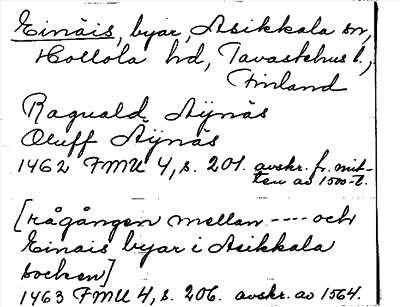 Einäis, byar, Asikkala sn,
Hollola hd, Tavastehus l.,
Finland
Raguald Aÿnäs
Oluff Äÿnäs
1462 FMU 4, s. 201. avskr. fr. mit-
ten av 1500-t.
[rågången mellan ---- och
Einais byar i Asikkala
socken]
1463 FMU 4, s. 206. avskr. av 1564.